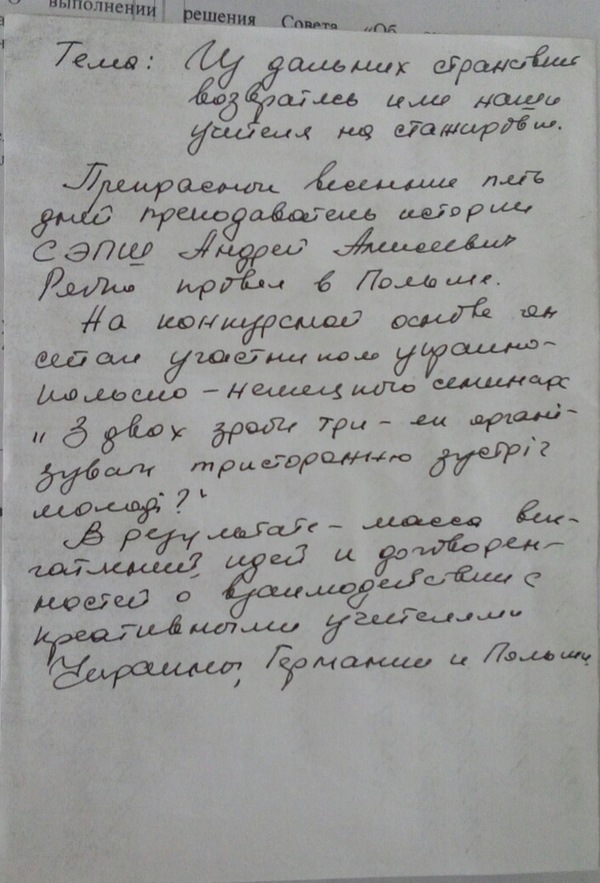 выполнении
решения Совета «Об
Тема: Из дальних странствий
возвратясь или наши
учителя на стажировке.
Прекрасных весенние пять
дней преподаватель истории
СЭПШ Андрей Алексеевич
провел в Польше.
На конкурсной основе он
стал участником украино-
польско-немецкого семинара
"З двох зроби три - як органі-
зувати тристоронню зустріч
молоді?"
В результате - масса впе-
чатлений, идей и договорен-
ностей о взаимодействии с
креативными учителями
Украины, Германии и Польши